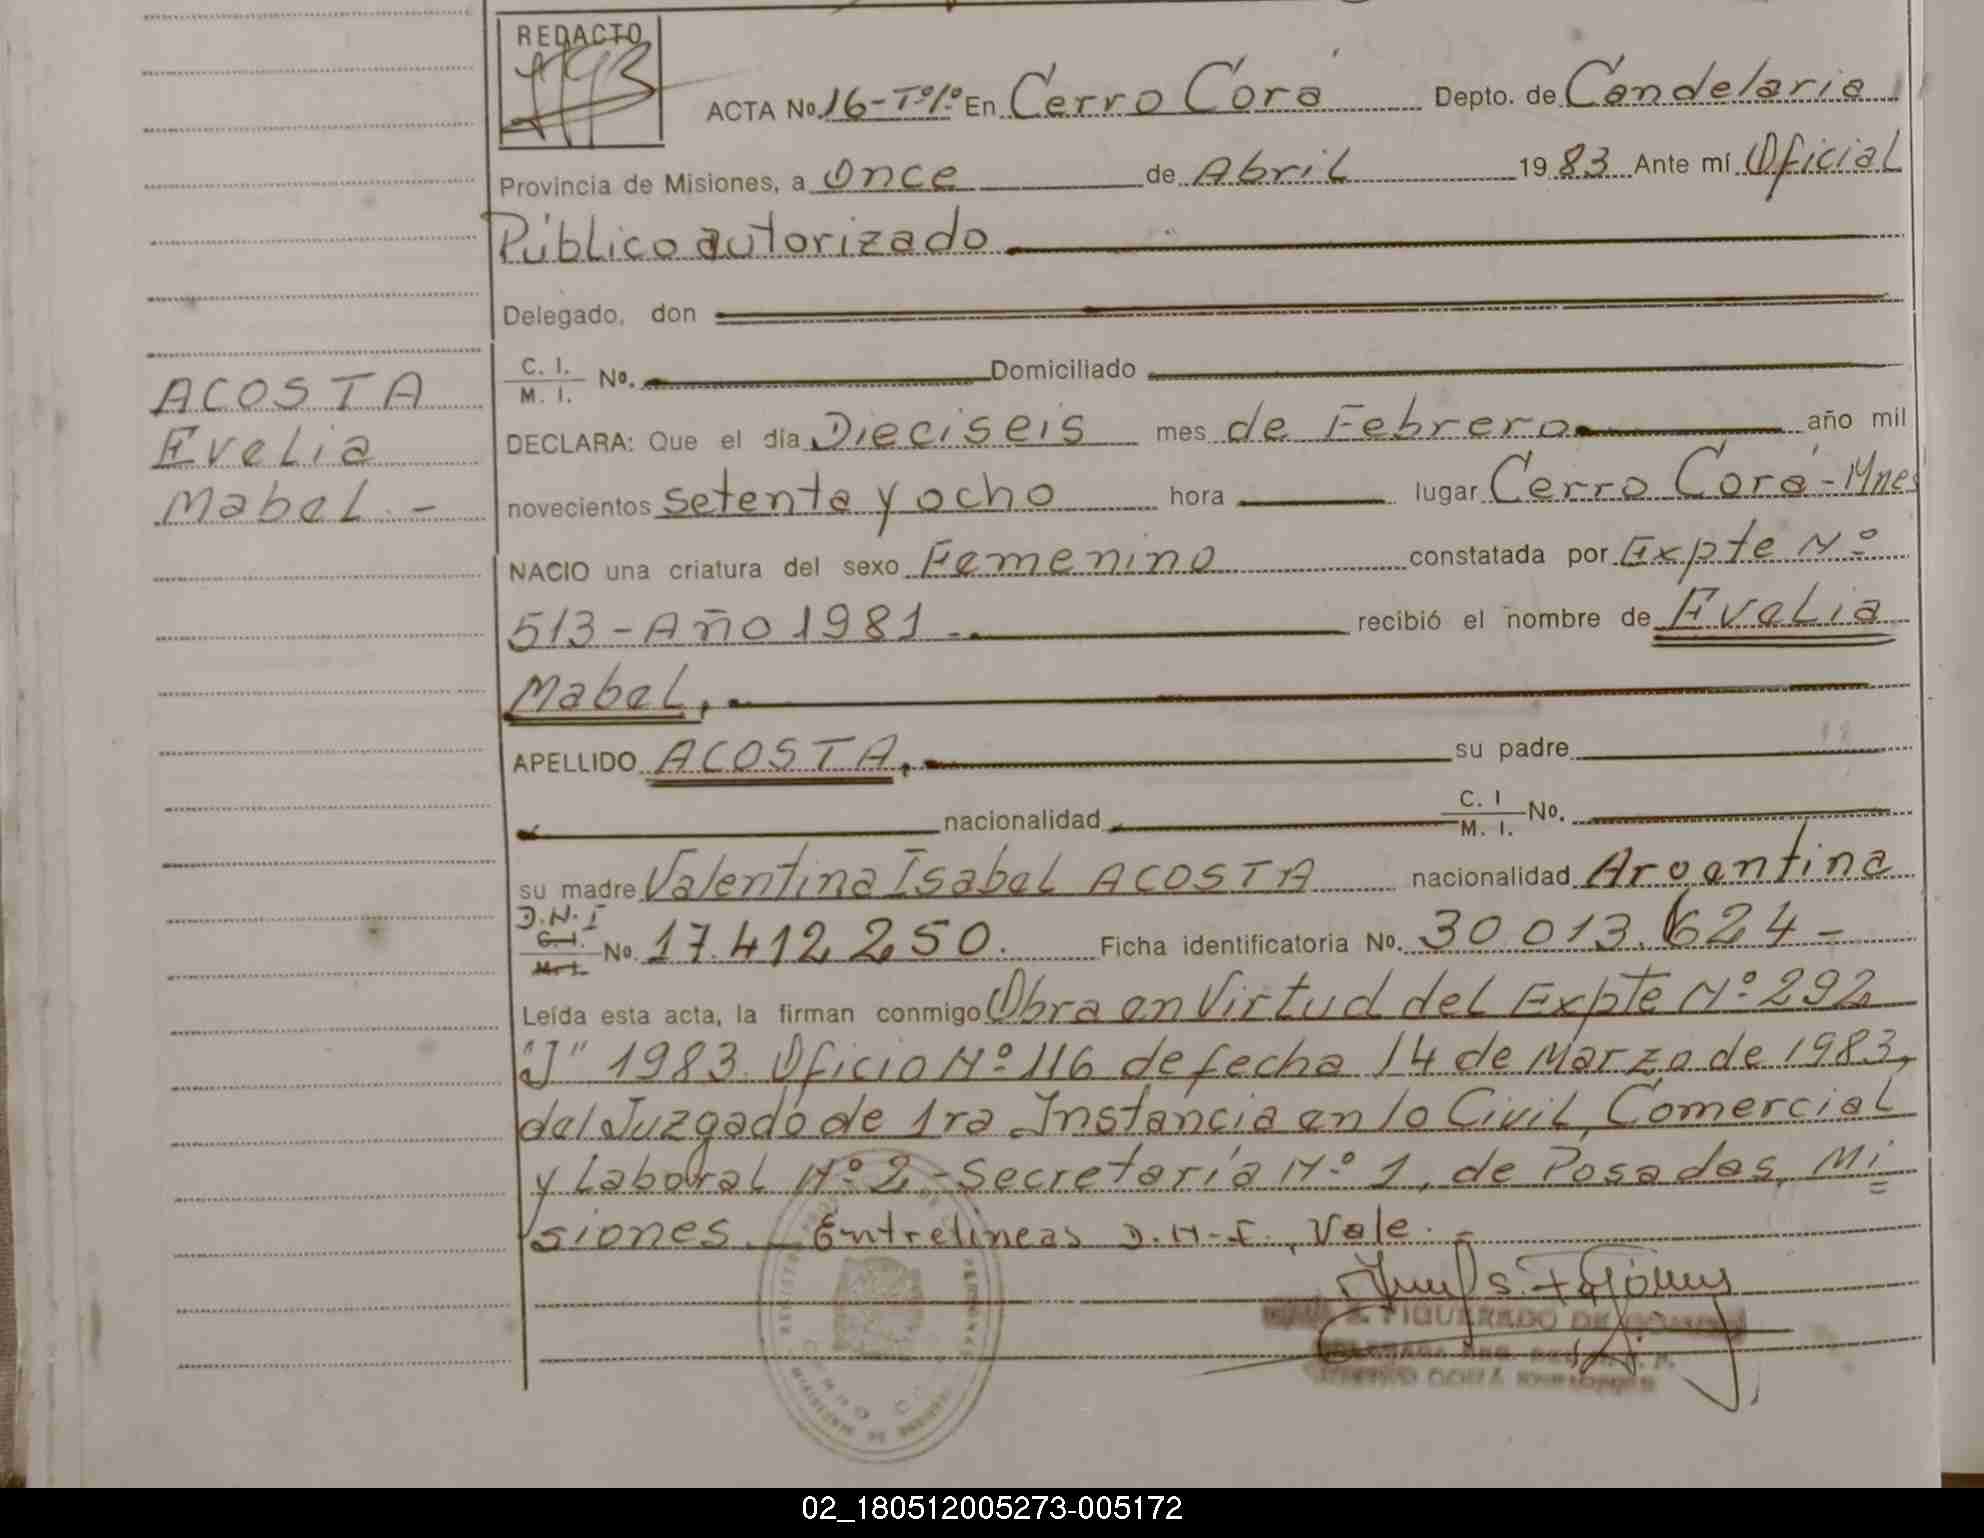 REDACTO
ACTA No. 16-Tº1º En Cerro Corá Depto. de Candelaria
Provincia de Misiones, a Once de Abril 1983 Ante mí Oficial
Público autorizado
Delegado, don
C. I. M. I. No. Domiciliado
ACOSTA
Evelia
Mabel.-
DECLARA: Que el día Dieciseis mes de Febrero año mil
novecientos setenta y ocho hora lugar Cerro Corá-Mnes
NACIO una criatura del sexo Femenino constatada por Expte Nº
513-Año 1981.- recibió el nombre de Evelia
Mabel,
APELLIDO ACOSTA, su padre
nacionalidad C. I M. I. No.
su madre Valentina Isabel ACOSTA nacionalidad Argentina
D.N.I C. I. M. I. No. 17.412.250. Ficha identificatoria No. 30013.624-
Leída esta acta, la firman conmigo Obra en Virtud del Expte Nº 292
"J" 1983. Oficio Nº 116 de fecha 14 de Marzo de 1983,
del Juzgado de 1ra Instancia en lo Civil, Comercial
y Laboral Nº 2,-Secretaría Nº 1, de Posadas, Mi
siones. Entrelineas D.N.I., Vale.-
S. FIGUEREDO DE
CERRO CORA
02_180512005273-005172